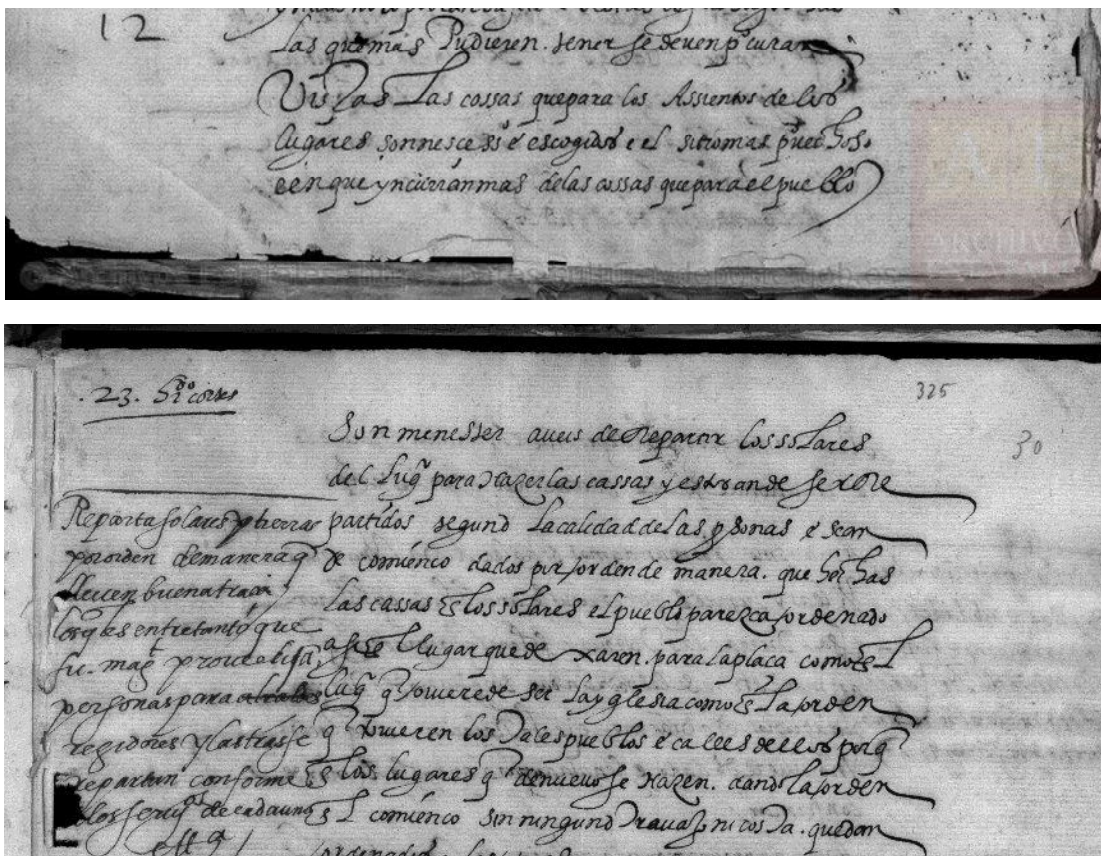 12
las que mas Pudieren tener se deven p°curar
Vistas Las cossas que para los Assientos de los
lugares son nescess° e escogido e el sitio mas p°vechoso
e en que yncurran mas de las cossas que para el pueblo
.23. h^do cortes
325
30
Son menester aveis de Repartir los solares
del lug^r para hazer las cassas y estos an de ser Re
partidos segund la calidad de las p^rsonas e sean
de comienco dados por orden de manera. que hechas
Las cassas en los solares el pueblo parezca ordenado
asi en el lugar que dexaren. para la placa como en el
lug^r q oviere de ser la yglesia como en la orden
q tovieren los tales pueblos e calles dellos porq
en los lugares q de nuevo se hazen. dando la orden
en el comienco sin ningund travajo ni costa. quedan
Reparta solares y tierras
por orden de manera q
lleven buena traça
entretanto que
su. mag^t provea
personas para
regidores y las tras se
repartan conforme
a los servi^os de cada uno